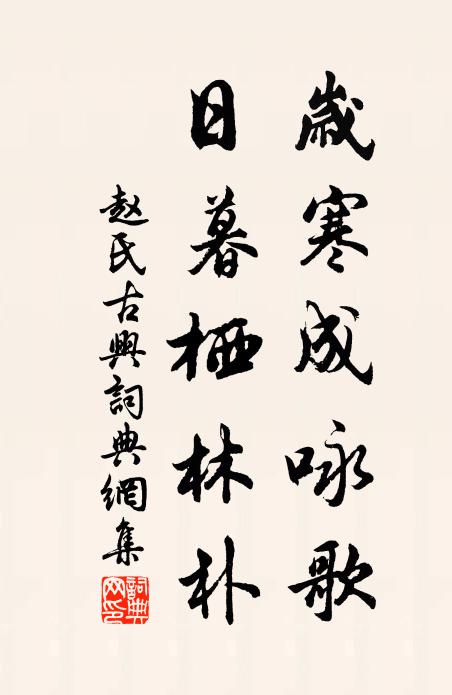 歲寒成咏歌
日暮栖林朴
赵氏古典詞典網集
詞典网印